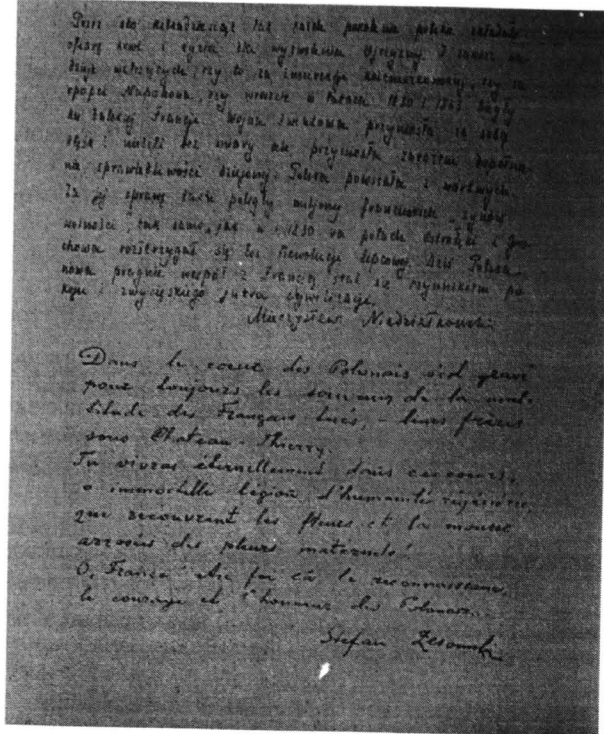 Przez sto kilkadziesiąt lat każde pokolenie polskie składało
ofiarę krwi i życia dla wyzwolenia Ojczyzny. I zawsze
czy to za insurekcji kościuszkowskiej, czy za
epopei Napoleona, czy wreszcie w latach 1830 i 1863 biegły
ku dalekiej Francji. Wojna światowa przyniosła za sobą
i nieszczęść bez miary ale przyniosła zarazem
na sprawiedliwości dziejowej. Polska powstała z martwych
Za jej sprawę także poległy miljony francuskich "synów
wolności", tak samo, jak w r. 1830 na polach Ostrołęki i Gro-
chowa rozstrzygał się los Rewolucji lipcowej. Dziś Polska
nowa pragnie wespół z Francją stać się czynnikiem po-
koju i zwycięskiego jutra cywilizacji.
Mieczysław Niedziałkowski
Dans le coeur des Polonais s'est gravé
pour toujours les souvenirs de la mul-
titude des Français tués, – leurs frères
sous Château-Thierry.
Tu vivras éternellement dans ces coeurs,
o immortelle légion d'humanité régénérée,
que recouvrent les fleurs et la mousse
arrosées des pleurs maternels!
O, France! Aie foi en la reconnaissance,
le courage et l'honneur des Polonais...
Stefan Żeromski